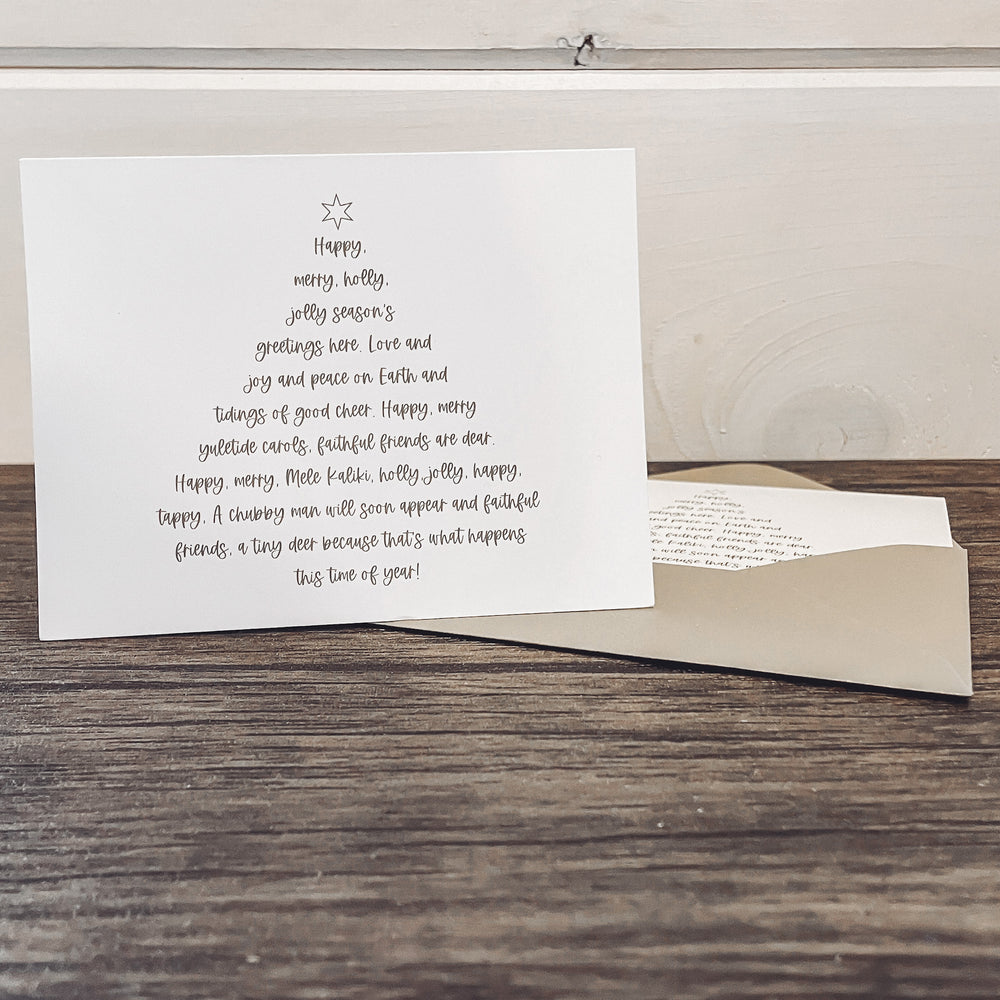 Happy,
merry, holly,
jolly season's
greetings here. Love and
joy and peace on Earth and
tidings of good cheer. Happy, merry
yuletide carols, faithful friends are dear.
Happy, merry, Mele Kaliki, holly,jolly, happy,
tappy, A chubby man will soon appear and faithful
friends, a tiny deer because that's what happens
this time of year!
Happy,
merry, holly,
jolly season's
here. Love and
and peace on Earth and
good cheer. Happy, merry
faithful friends are dear.
Kaliki, holly, jolly,
will soon appear
because that's